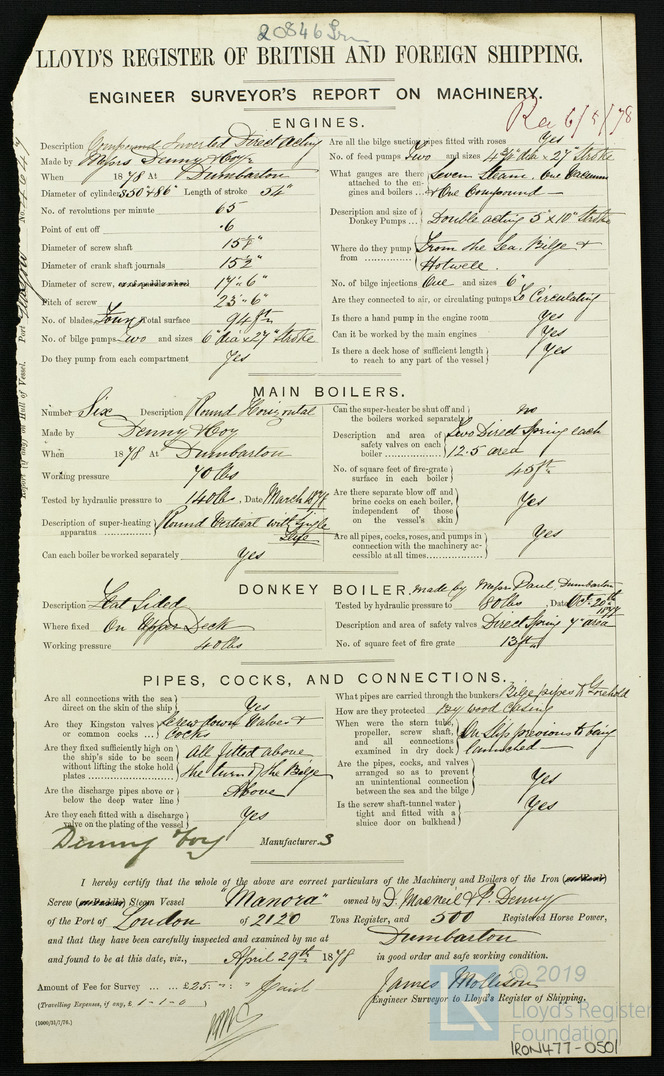 20846 Irn
LLOYD'S REGISTER OF BRITISH AND FOREIGN SHIPPING.
ENGINEER SURVEYOR'S REPORT ON MACHINERY.
Rec 6/5/78
ENGINES.
Description Compound Inverted Direct Acting
Made by Messrs Denny & Coy
When 1878 At Dumbarton
Diameter of cylinders 50" & 86" Length of stroke 54"
No. of revolutions per minute 65
Point of cut off .6
Diameter of screw shaft 15½"
Diameter of crank shaft journals 15½"
Diameter of screw, 17" 6"
Pitch of screw 23" 6"
No. of blades Four Total surface 94 ft
No. of bilge pumps Two and sizes 6" dia x 27" Stroke
Do they pump from each compartment Yes
Are all the bilge suction pipes fitted with roses Yes
No. of feed pumps Two and sizes dia x 27" Stroke
What gauges are there attached to the engines and boilers Seven Steam. One Vacuum & One Compound
Description and size of Donkey Pumps Double acting 5" x 10" Stroke
Where do they pump from From the Sea. Bilge & Hotwell.
No. of bilge injections One and sizes 6"
Are they connected to air, or circulating pumps To Circulating
Is there a hand pump in the engine room Yes
Can it be worked by the main engines Yes
Is there a deck hose of sufficient length to reach to any part of the vessel Yes
Report (if any) on Hull of Vessel. Port No.
MAIN BOILERS.
Number Six Description Round Horizontal
Made by Denny & Coy
When 1878 At Dumbarton
Working pressure 70 lbs
Tested by hydraulic pressure to 140 lbs, Date March 1878
Description of super-heating apparatus Round Vertical with Single
Can each boiler be worked separately Yes
Can the super-heater be shut off and the boilers worked separately no
Description and area of safety valves on each boiler Two Direct Spring each 12.5 area
No. of square feet of fire-grate surface in each boiler 45 ft
Are there separate blow off and brine cocks on each boiler, independent of those on the vessel's skin Yes
Are all pipes, cocks, roses, and pumps in connection with the machinery accessible at all times Yes
DONKEY BOILER, made by Messrs Paul, Dumbarton
Description Flat Sided
Where fixed On Upper Deck
Working pressure 40 lbs
Tested by hydraulic pressure to 80 lbs, Date Oct. 20th 1877
Description and area of safety valves Direct Spring 7" area
No. of square feet of fire grate 13 ft
PIPES, COCKS, AND CONNECTIONS.
Are all connections with the sea direct on the skin of the ship Yes
Are they Kingston valves or common cocks Screw down Valves & Cocks
Are they fixed sufficiently high on the ship's side to be seen without lifting the stoke hold plates All fitted above the turn of the Bilge
Are the discharge pipes above or below the deep water line Above
Are they each fitted with a discharge valve on the plating of the vessel Yes
What pipes are carried through the bunkers Bilge pipes to Forehold
How are they protected By wood casing
When were the stern tube, propeller, screw shaft, and all connections examined in dry dock On Slip previous to being launched
Are the pipes, cocks, and valves arranged so as to prevent an unintentional connection between the sea and the bilge Yes
Is the screw shaft-tunnel water tight and fitted with a sluice door on bulkhead Yes
Denny & Coy Manufacturers
I hereby certify that the whole of the above are correct particulars of the Machinery and Boilers of the Iron (or Wood)
Screw (or Paddle) Steam Vessel "Manora" owned by D. MacNeil & P. Denny
of the Port of London of 2120 Tons Register, and 500 Registered Horse Power,
and that they have been carefully inspected and examined by me at Dumbarton
and found to be at this date, viz., April 29th 1878 in good order and safe working condition.
Amount of Fee for Survey ... ... £25 - " - " paid
James Mollison
Engineer Surveyor to Lloyd's Register of Shipping.
(Travelling Expenses, if any, £ 1-1-0)
[1000/31/1/78.]
© 2019
LR Lloyd's Register Foundation
IRON477-0501